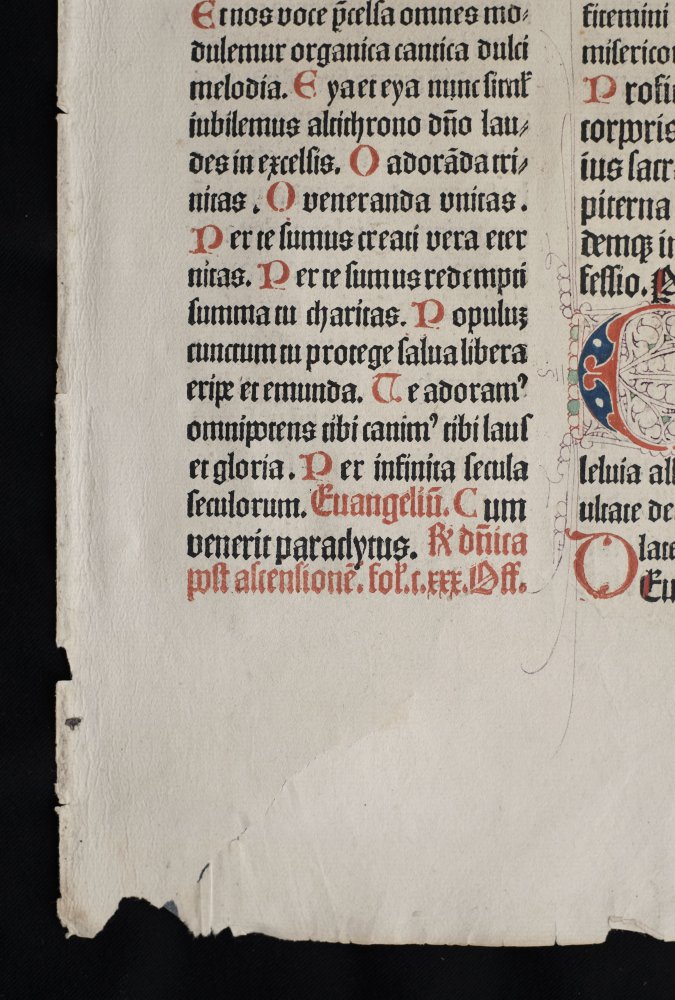 Et nos voce p̄celsa omnes mo⸗
dulemur organica cantica dulci
melodia. Eya et eya nunc simĺ
iubilemus altithrono dn̄o lau⸗
des in excelsis. O adorāda tri⸗
nitas. O veneranda vnitas.
Per te sumus creati vera eter
nitas. Per te sumus redempti
summa tu charitas. Populuꝫ
cunctum tu protege salua libera
eripe et emunda. Te adoramꝰ
omnipotens tibi canimꝰ tibi laus
et gloria. Per infinita secula
seculorum. Euangeliū. Cum
venerit paraclytus. R̸ dn̄ica
post ascensionē. fol̸. c. xxx. Off.
fitemini
miserico
Profi
corporis
ius sacr
piterna
demqꝫ in
fessio.
leluia al
ultate de
Eu